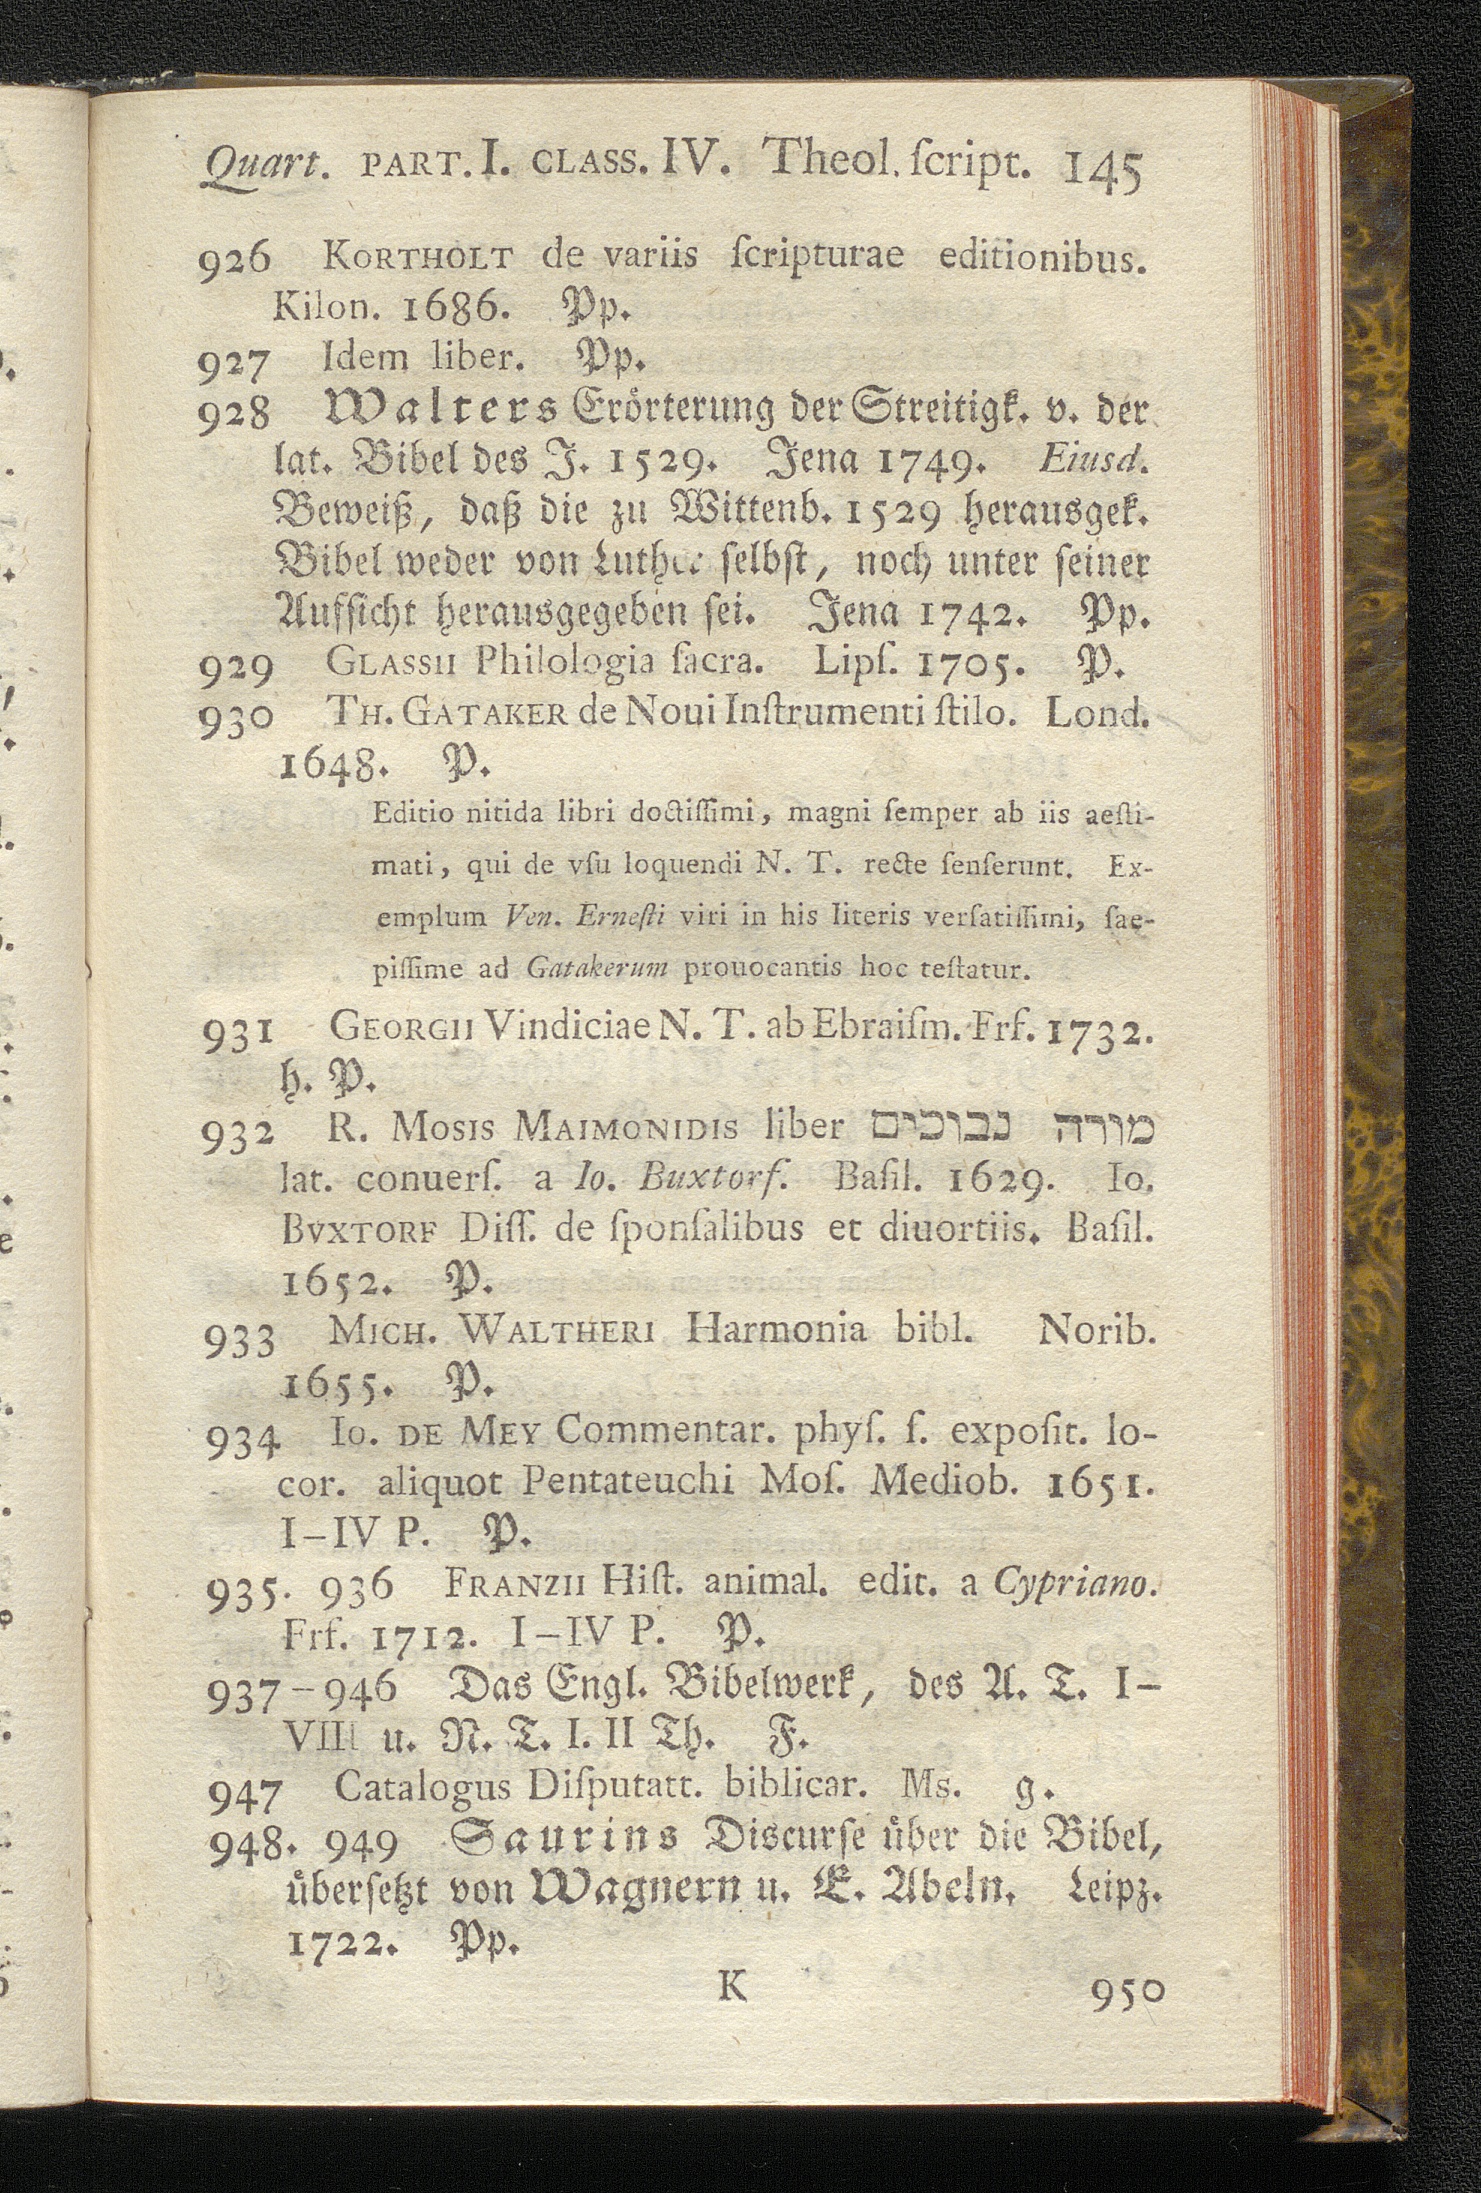 Quart. PART. I. CLASS. IV. Theol. ſcript. 145
926 KORTHOLT de variis ſcripturae editionibus.
Kilon. 1686. Pp.
927 Idem liber. Pp.
928 Walters Erörterung der Streitigk. v. der
lat. Bibel des J. 1529. Jena 1749. Eiusd.
Beweiß, daß die zu Wittenb. 1529 herausgek.
Bibel weder von Luther ſelbſt, noch unter ſeiner
Aufſicht herausgegeben ſei. Jena 1742. Pp.
929 GLASSII Philologia ſacra. Lipſ. 1705. P.
930 TH. GATAKER de Noui Inſtrumenti ſtilo. Lond.
1648. P.
Editio nitida libri doctiſſimi, magni ſemper ab iis aeſti-
mati, qui de vſu loquendi N. T. recte ſenſerunt. Ex-
emplum Ven. Erneſti viri in his literis verſatiſſimi, ſae-
piſſime ad Gatakerum prouocantis hoc teſtatur.
931 GEORGII Vindiciae N. T. ab Ebraiſm. Frf. 1732.
h. P.
932 R. MOSIS MAIMONIDIS liber מורה נבוכים
lat. conuerſ. a Io. Buxtorf. Baſil. 1629. Io.
BVXTORF Diſſ. de ſponſalibus et diuortiis. Baſil.
1652. P.
933 MICH. WALTHERI Harmonia bibl. Norib.
1655. P.
934 Io. DE MEY Commentar. phyſ. ſ. expoſit. lo-
cor. aliquot Pentateuchi Moſ. Mediob. 1651.
I–IV P. P.
935. 936 FRANZII Hiſt. animal. edit. a Cypriano.
Frf. 1712. I–IV P. P.
937–946 Das Engl. Bibelwerk, des A. T. I–
VIII u. N. T. I. II Th. F.
947 Catalogus Diſputatt. biblicar. Ms. g.
948. 949 Saurins Discurſe über die Bibel,
überſetzt von Wagnern u. E. Abeln. Leipz.
1722. Pp.
K 950